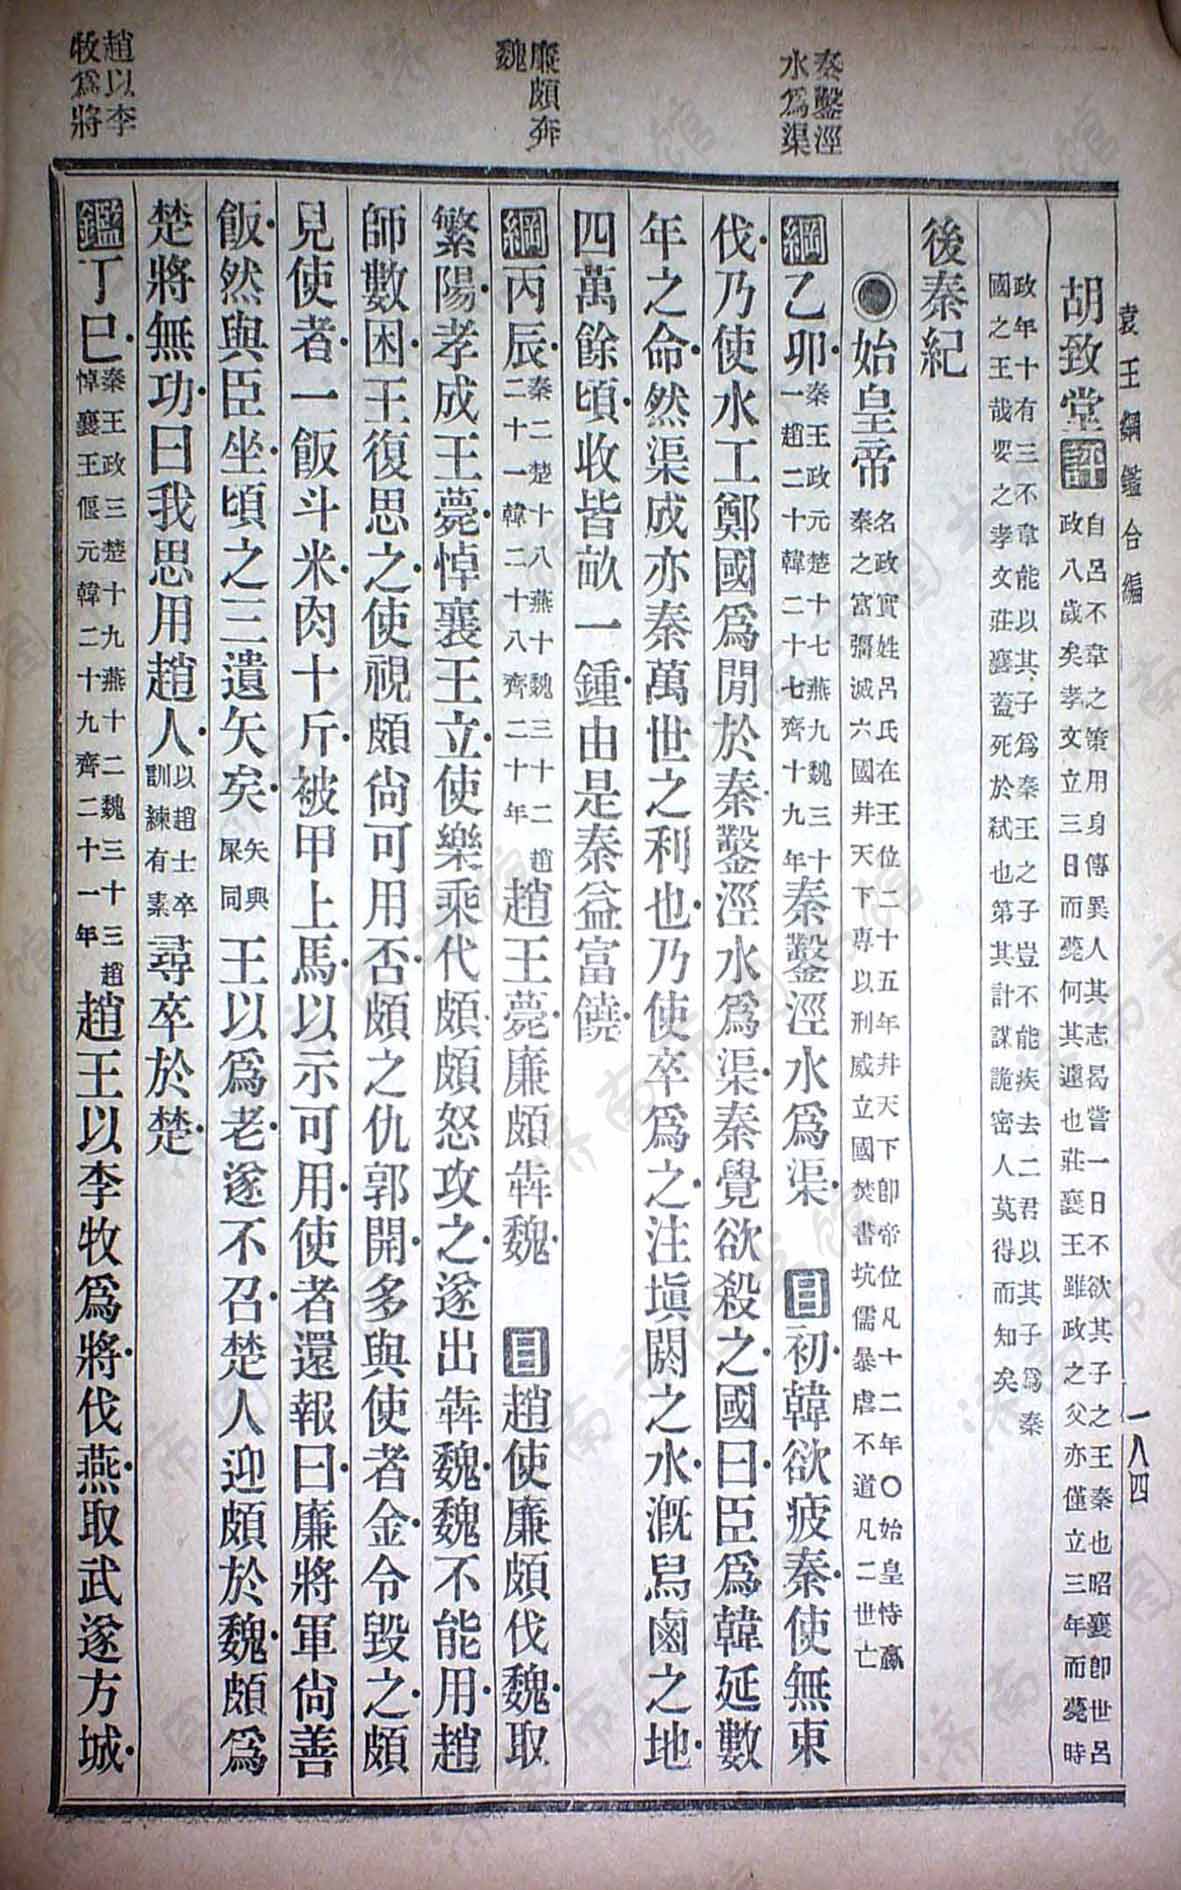 袁王綱鑑合編
一八四
秦鑿涇
水爲渠
廉頗奔
魏
趙以李
牧爲將
胡致堂評自呂不韋之策用身傳異人其志曷嘗一日不欲其子之王秦也昭襄卽世呂
政八歲矣孝文立三日而薨何其遽也莊襄王雖政之父亦僅立三年而薨時
政年十有三不韋能以其子爲秦王之子豈不能疾去二君以其子爲秦
國之王哉要之孝文莊襄葢死於弒也第其計謀詭密人莫得而知矣
後秦紀
◉始皇帝名政實姓呂氏在王位二十五年幷天下卽帝位凡十二年〇始皇恃嬴
秦之富彊滅六國幷天下專以刑威立國焚書坑儒暴虐不道凡二世亡
綱乙卯秦王政元楚十七燕九魏三十
一趙二十韓二十七齊十九年秦鑿涇水爲渠 目初韓欲疲秦使無東
伐乃使水工鄭國爲閒於秦鑿涇水爲渠秦覺欲殺之國曰臣爲韓延數
年之命然渠成亦秦萬世之利也乃使卒爲之注塡閼之水漑舄鹵之地
四萬餘頃收皆畝一鍾由是秦益富饒
綱丙辰秦二楚十八燕十魏三十二趙
二十一韓二十八齊二十年趙王薨廉頗犇魏 目趙使廉頗伐魏取
繁陽孝成王薨悼襄王立使樂乘代頗頗怒攻之遂出犇魏魏不能用趙
師數困王復思之使視頗尙可用否頗之仇郭開多與使者金令毀之頗
見使者一飯斗米肉十斤被甲上馬以示可用使者還報曰廉將軍尙善
飯然與臣坐頃之三遺矢矣矢與
屎同王以爲老遂不召楚人迎頗於魏頗爲
楚將無功曰我思用趙人以趙士卒
訓練有素尋卒於楚
鑑丁巳秦王政三楚十九燕十二魏三十三趙
悼襄王偃元韓二十九齊二十一年趙王以李牧爲將伐燕取武遂方城